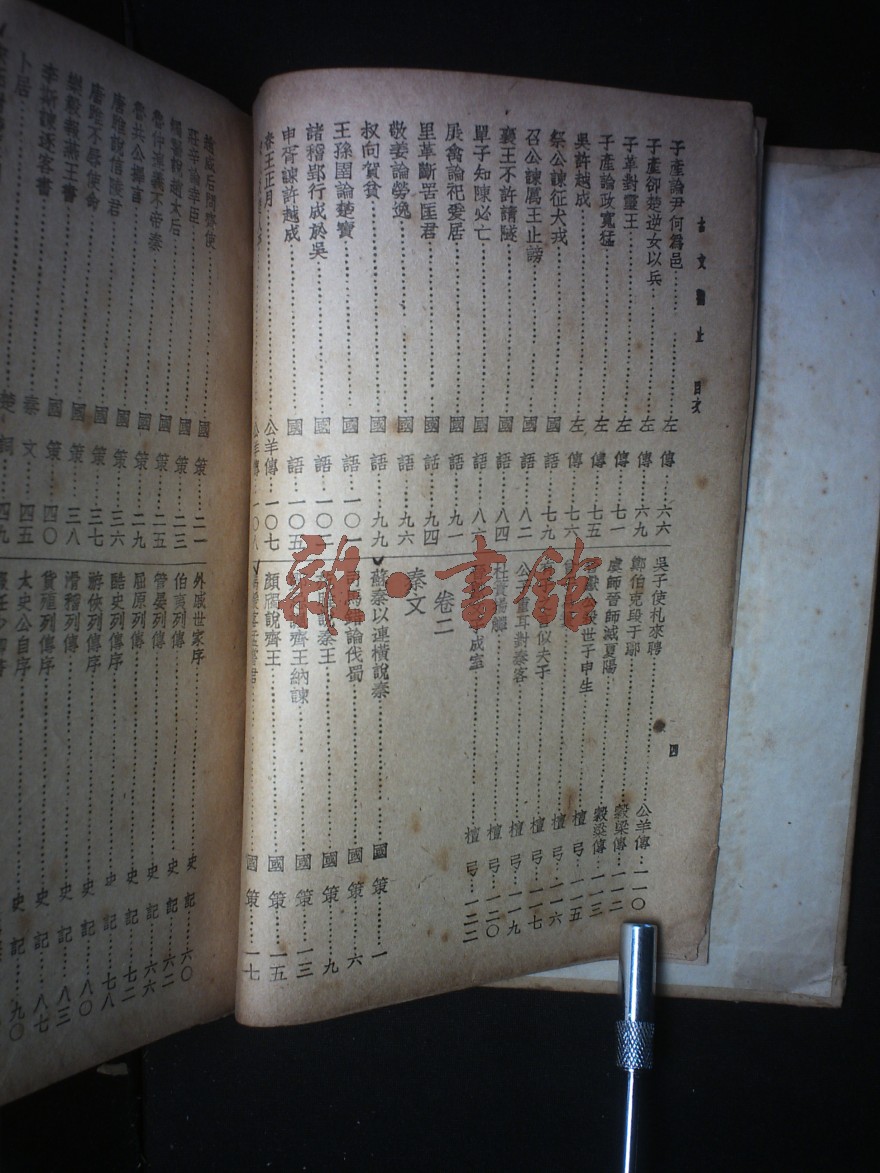 古文觀止 目次
四
子產論尹何爲邑 左傳 六六
子產卻楚逆女以兵 左傳 六九
子革對靈王 左傳 七一
子產論政寬猛 左傳 七五
吳許越成 左傳 七六
祭公諫征犬戎 國語 七九
召公諫厲王止謗 國語 八二
襄王不許請隧 國語 八四
單子知陳必亡 國語 八六
展禽論祀爰居 國語 九一
里革斷罟匡君 國語 九四
敬姜論勞逸 國語 九六
叔向賀貧 國語 九九
王孫圉論楚寶 國語 一〇一
諸稽郢行成於吳 國語 一〇二
申胥諫許越成 國語 一〇五
春王正月 公羊傳 一〇七
公羊傳 一〇八
吳子使札來聘 公羊傳 一一〇
鄭伯克段于鄢 穀梁傳 一一二
虞師晉師滅夏陽 穀梁傳 一一三
世子申生 檀弓 一一五
檀弓 一一六
似夫子 檀弓 一一七
公子重耳對秦客 檀弓 一一九
杜蕢揚觶 檀弓 一二〇
成室 檀弓 一二二
卷二
秦文
蘇秦以連橫說秦 國策 一
司馬錯論伐蜀 國策 六
說秦王 國策 九
齊王納諫 國策 一三
顏斶說齊王 國策 一五
國策 一七
趙威后問齊使 國策 二一
莊辛論幸臣 國策 二三
觸讋說趙太后 國策 二五
魯仲連義不帝秦 國策 二九
魯共公擇言 國策 三六
唐雎說信陵君 國策 三七
唐雎不辱使命 國策 三八
樂毅報燕王書 國策 四〇
李斯諫逐客書 秦文 四五
卜居 楚詞 四九
外戚世家序 史記 六〇
伯夷列傳 史記 六二
管晏列傳 史記 六六
屈原列傳 史記 七二
酷吏列傳序 史記 七八
游俠列傳序 史記 八〇
滑稽列傳 史記 八三
貨殖列傳序 史記 八七
太史公自序 史記 九〇
雜·書館